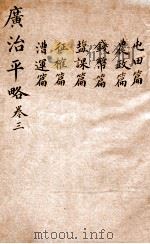 屯田篇
農政篇
錢幣篇
塩課篇
征榷篇
漕運篇
廣治平略 卷三